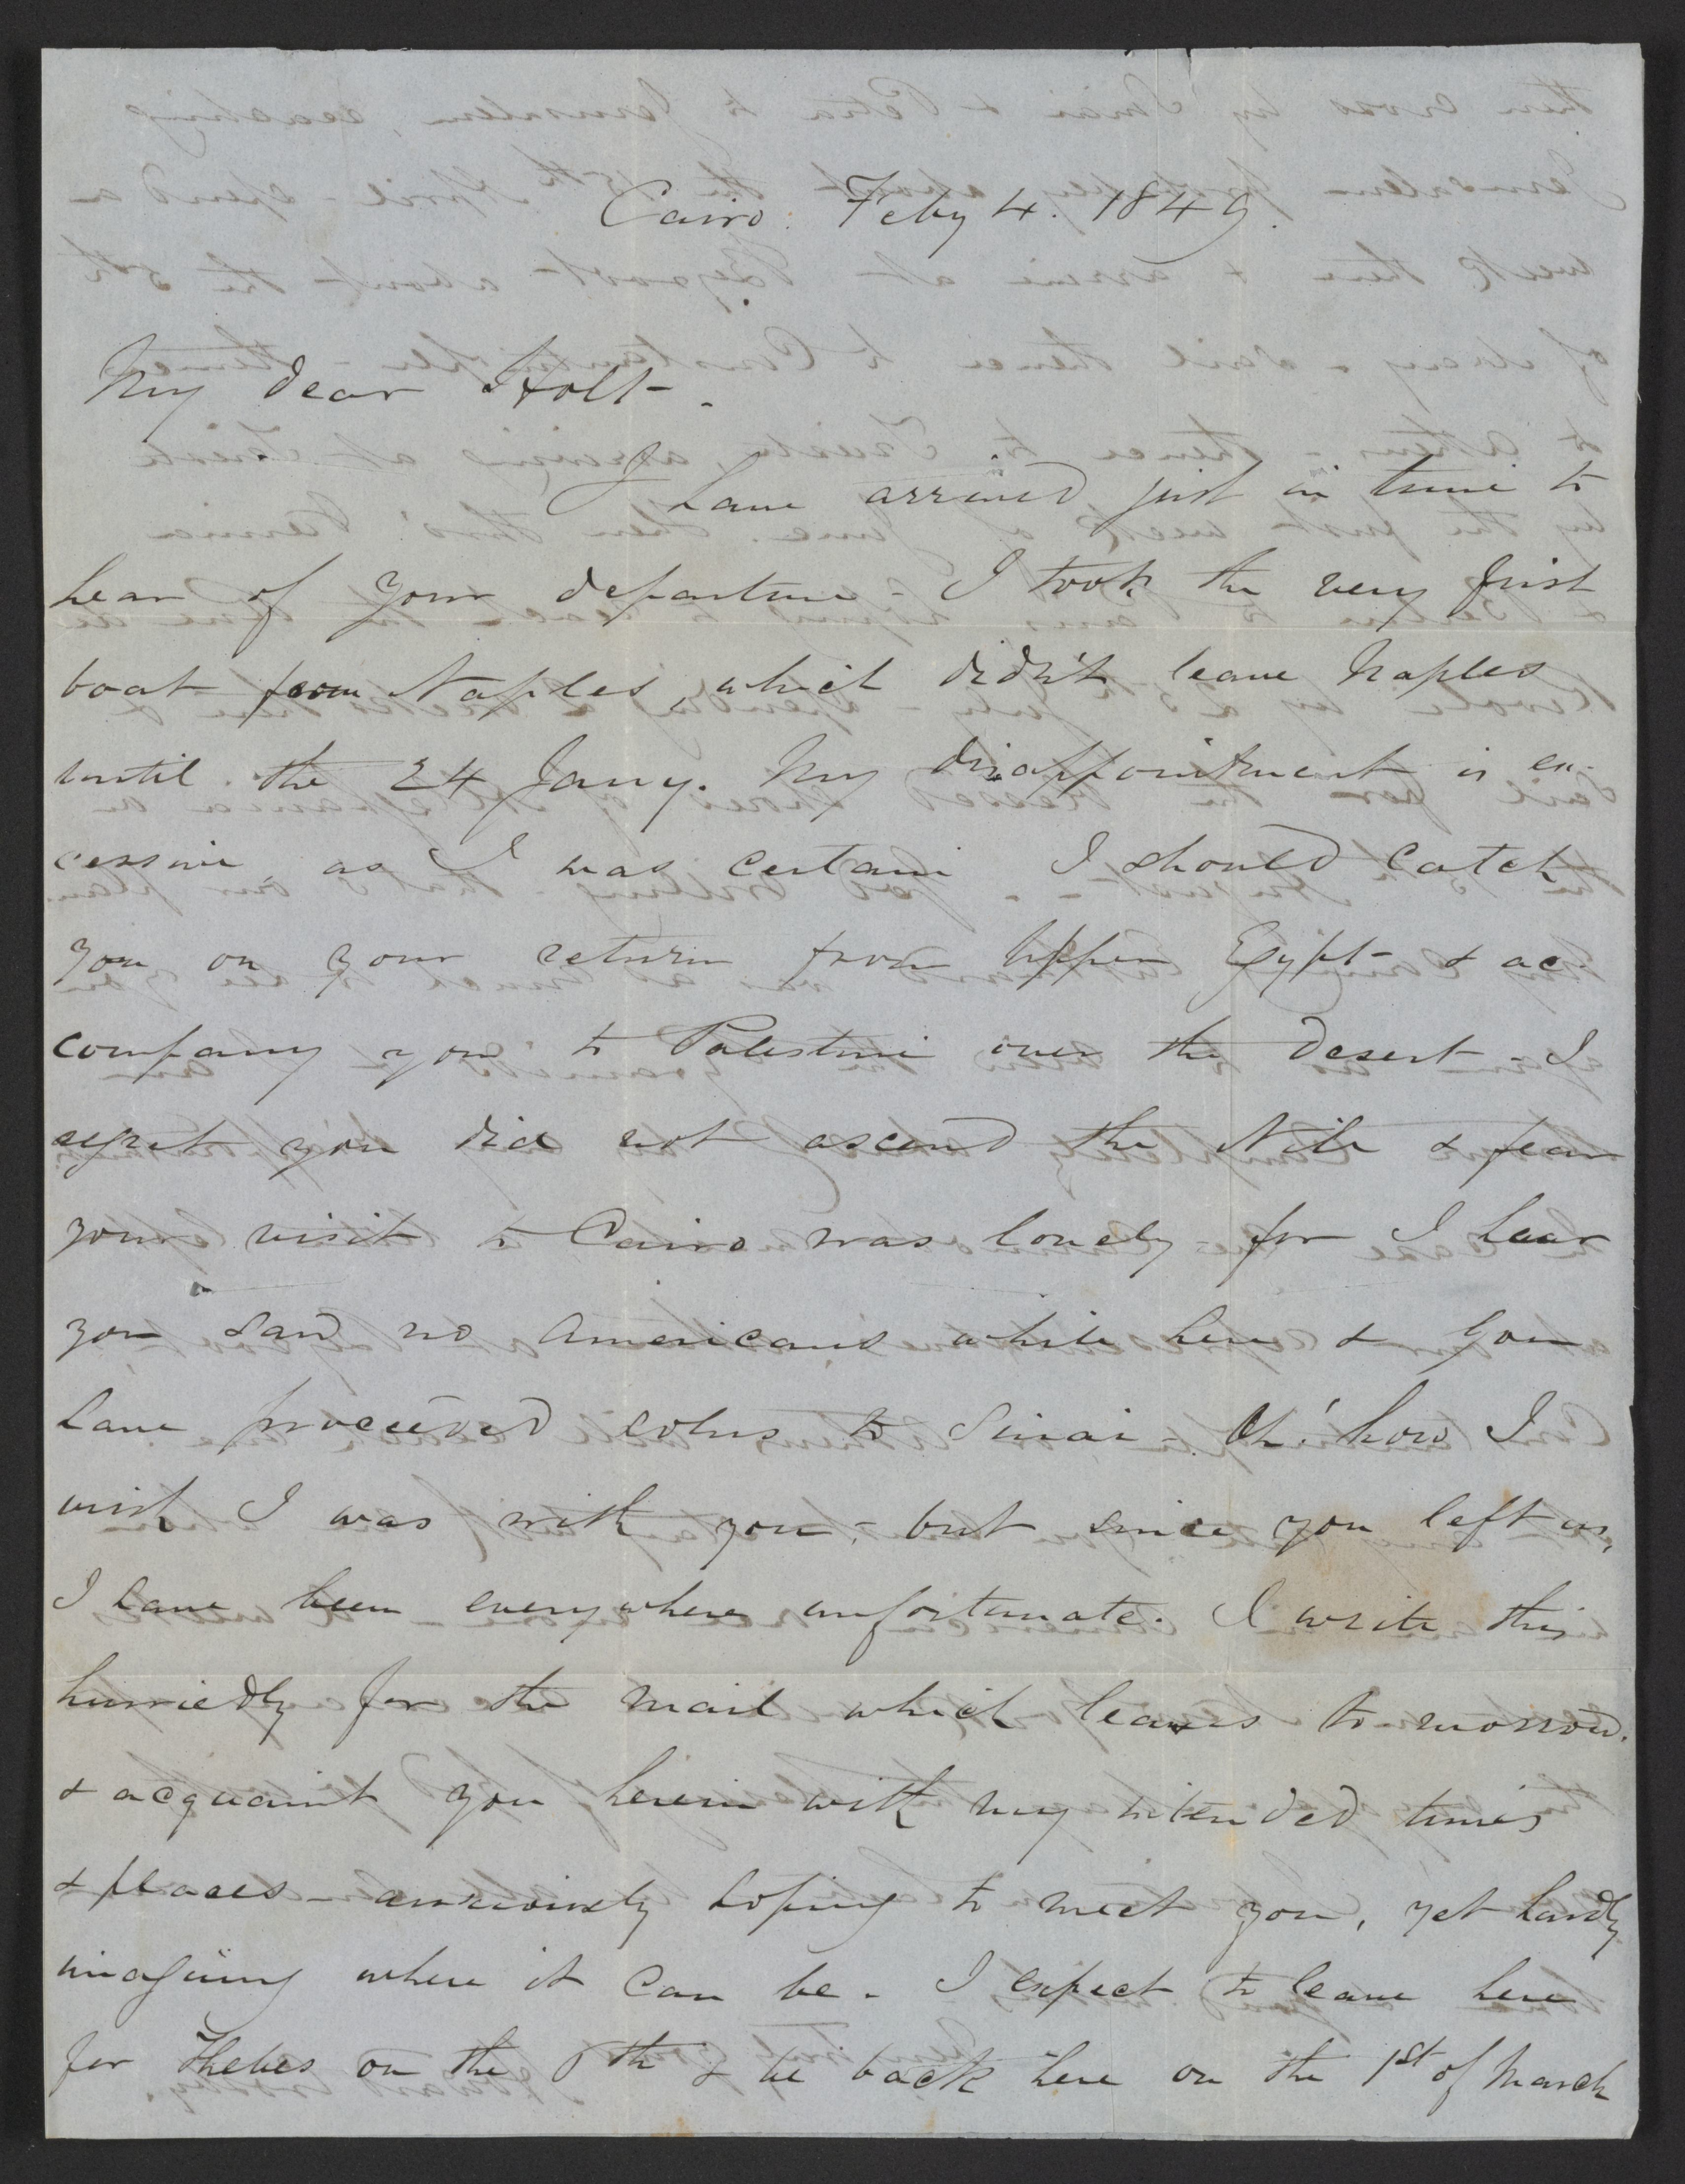 Cairo. Feby 4. 1849.
My dear Holt.
I have arrived just in time to
hear of your departure - I took the very first
boat from Naples, which didn't leave Naples
until the 24 Jany. My disappointment is ex-
cessive, as I was certain I should catch
you on your return from Upper Egypt & ac-
company you to Palestine over the desert - I
regret you did not ascend the Nile & fear
your visit to Cairo was lonely for I hear
you saw no Americans while here & you
have proceeded solus to Sinai - Oh! how I
wish I was with you - but since you left us,
I have been everywhere unfortunate. I write this
hurriedly for the mail which leaves to-morrow.
& acquaint you herein with my intended times
& places - anxiously hoping to meet you, yet hardly
imagining where it can be. I expect to leave here
for Thebes on the th & be back here on the 1st of March